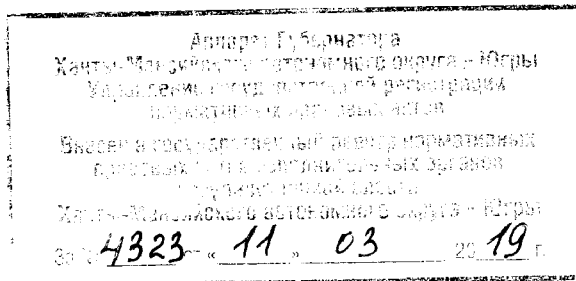 Аппарат Губернатора
Ханты-Мансийского автономного округа – Югры
Управление государственной регистрации
нормативных правовых актов
Внесен в государственный реестр нормативных
правовых актов исполнительных органов
государственной власти
Ханты-Мансийского автономного округа – Югры
За № 4323 « 11 » 03 20 19 г.